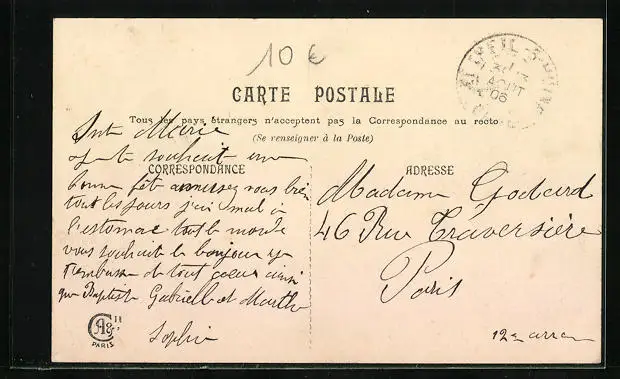 10 €
CREIL
31
AOUT
06
CARTE POSTALE
Tous les pays étrangers n'acceptent pas la Correspondance au recto
(Se renseigner à la Poste)
CORRESPONDANCE
ADRESSE
Marie
souhait une
bonne fete amusez vous bien
tout les jours j'ai mal à
l'estomac tout le monde
vous souhait le bonjour
t'embrasse de tout coeur ainsi
que Baptiste Gabrielle et Marthe
Sophie
Madame Godard
46 Rue Traversière
Paris
12e arron
PARIS